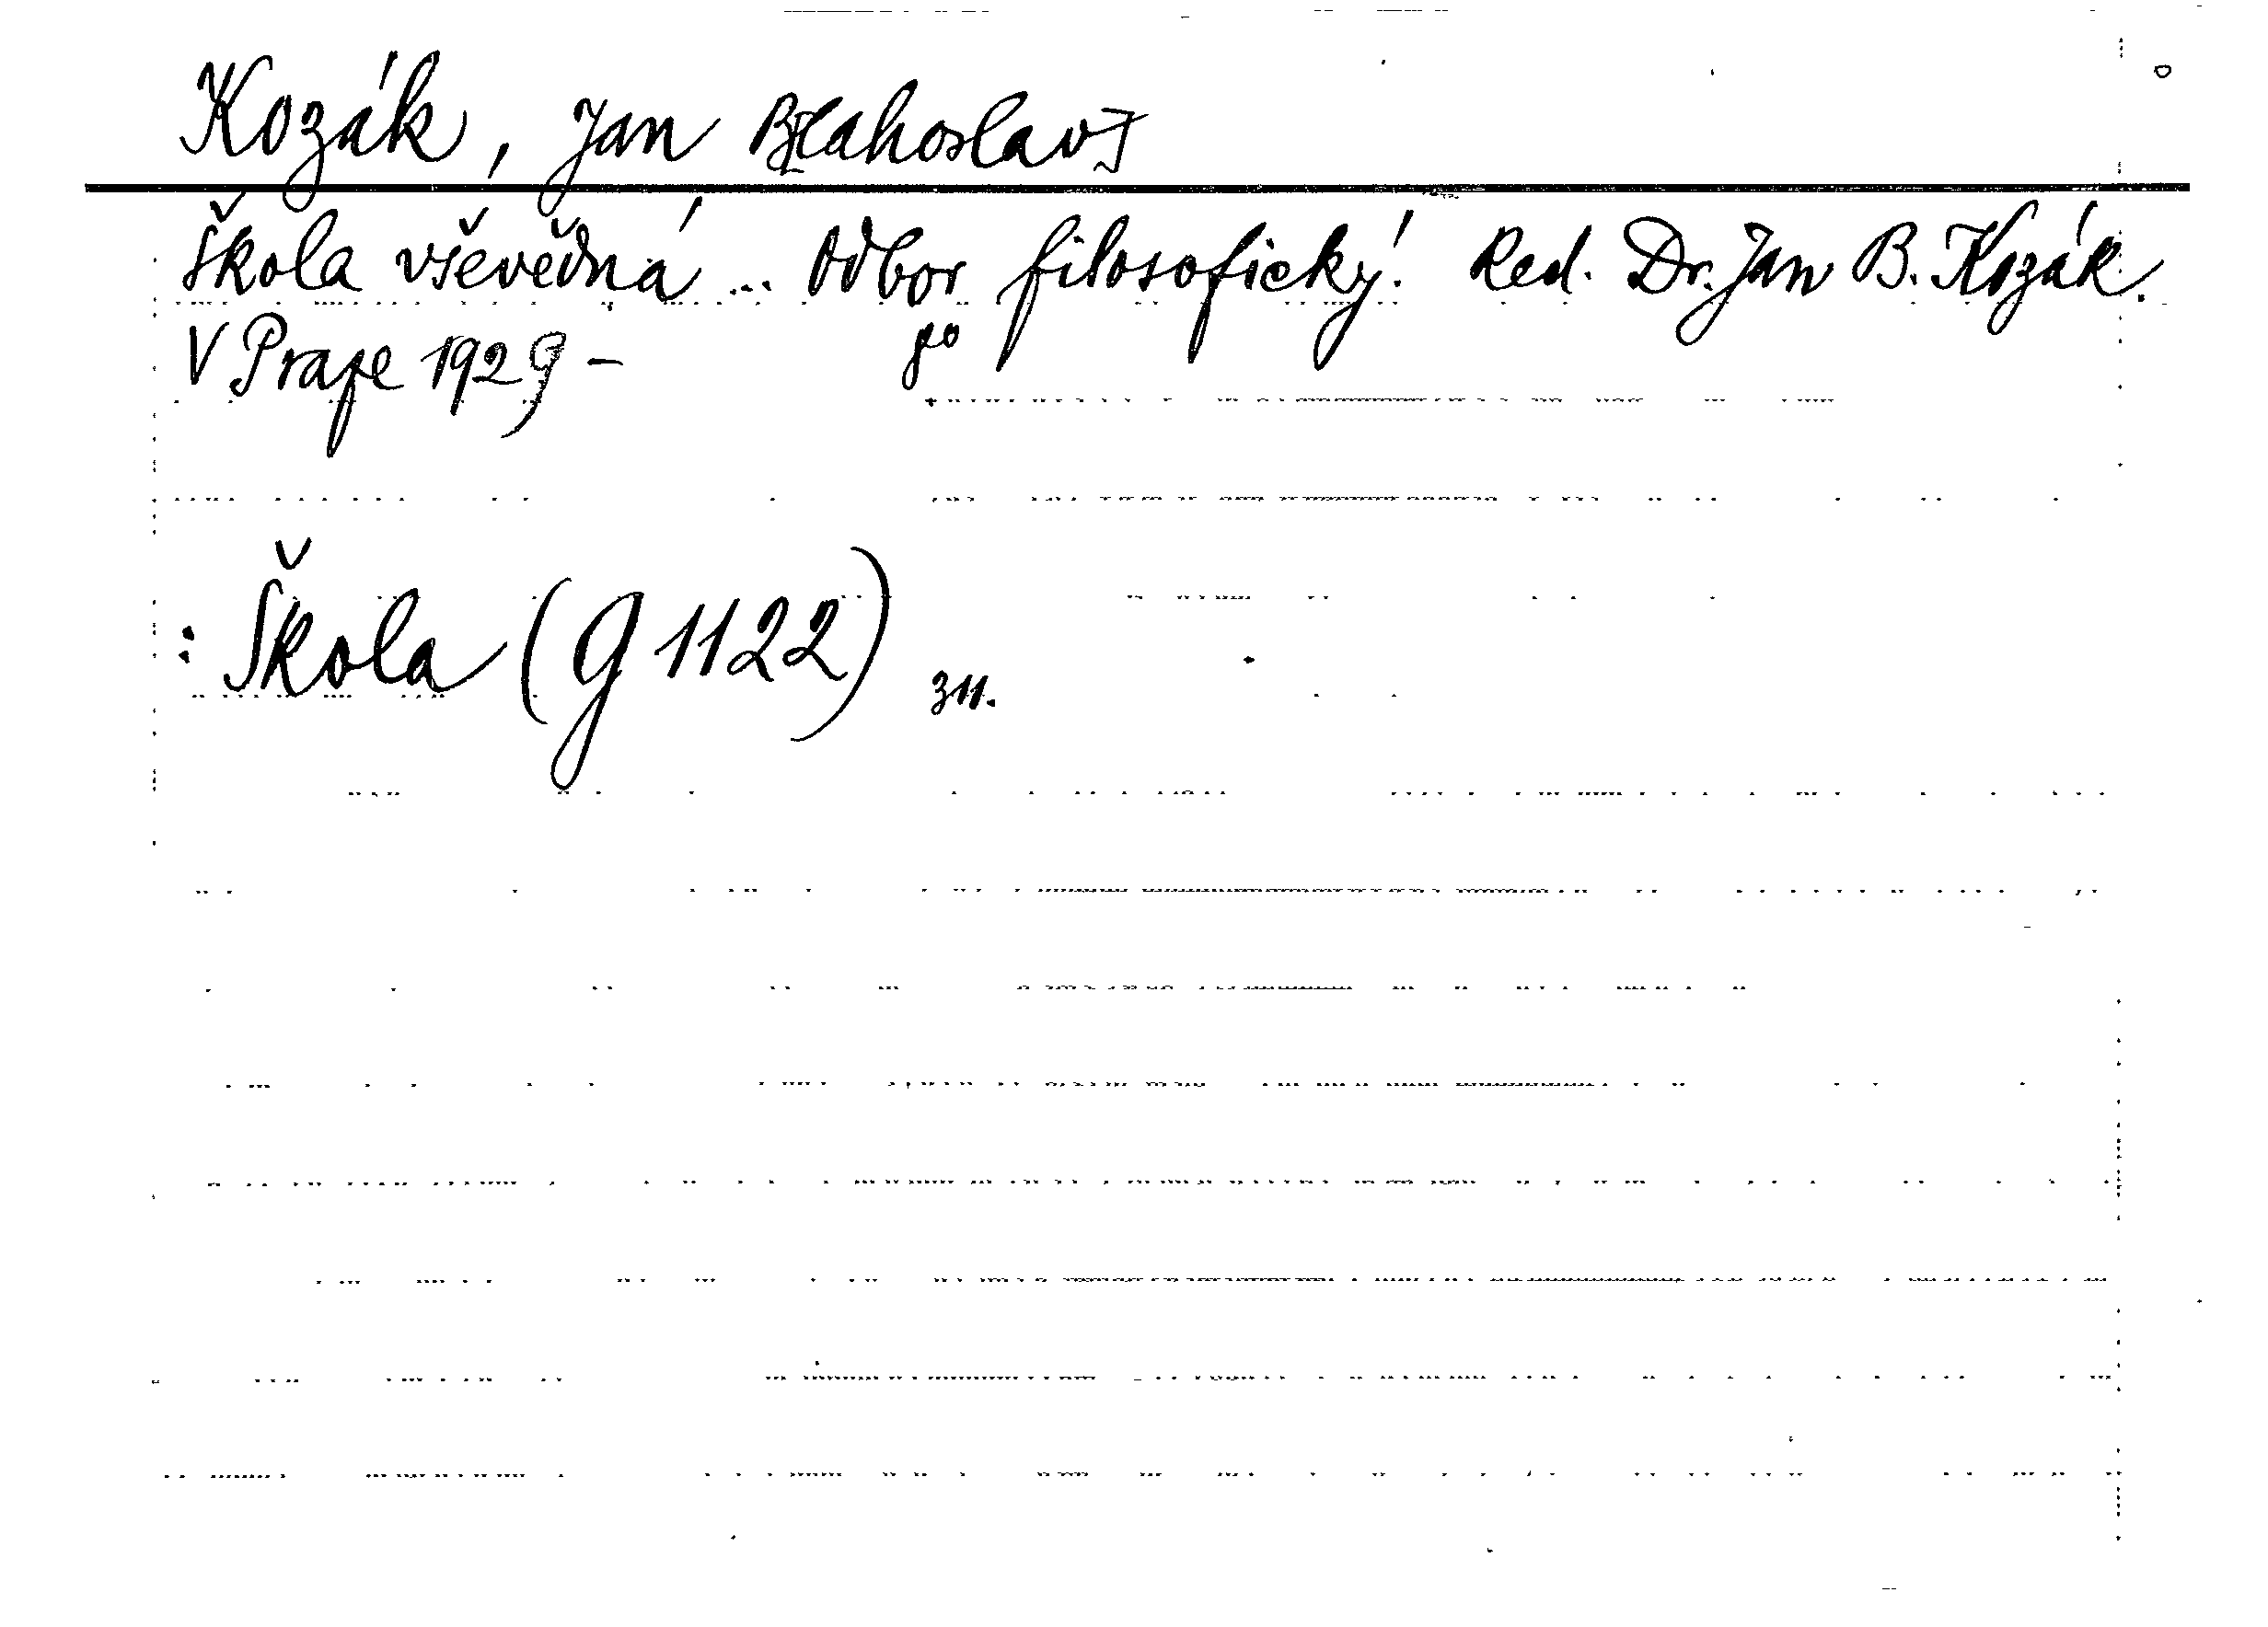 Kozák, Jan B[lahoslav]
Škola vševědná ... Odbor filosofický. Red. Dr. Jan B. Kozák.
V Praze 1929 - 8°
: Škola (g 1122) zn.